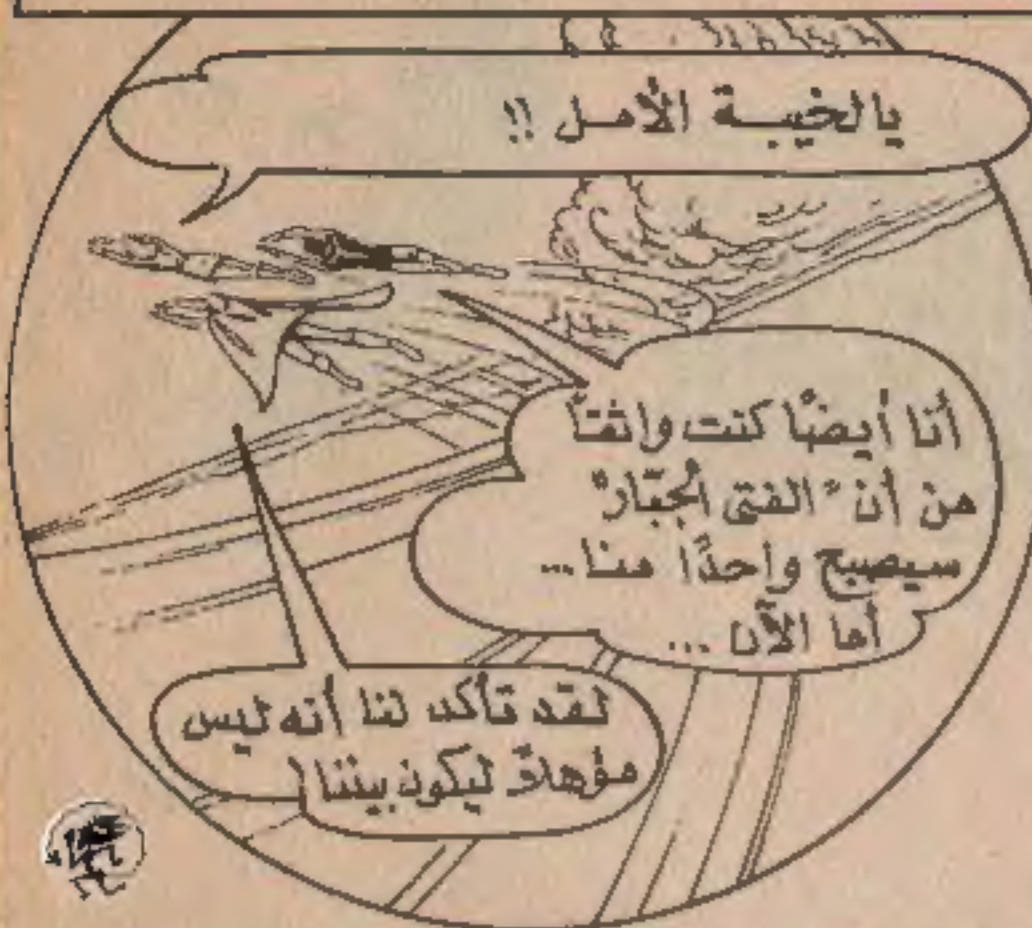 يالخيبة الأمل !!
أنا أيضًا كنت واثقاً
من أن "الفتى الجبّار"
سيصبح واحدًا منا...
أما الآن ...
لقد تأكد لنا أنه ليس
مؤهلاً ليكون بيننا!